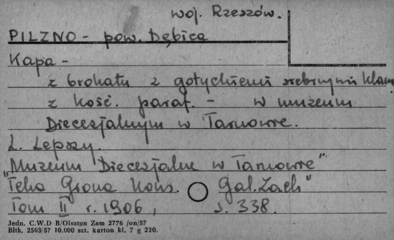 woj. Rzeszów.
PILZNO - pow. Dębica
Kapa -
z brokatu z gotyckiemi srebrnymi klam
z kość. paraf. - w muzeum
Diecezjalnym w Tarnowie.
L. Lepszy.
"Muzeum Diecezjalne w Tarnowie"
"Teka Grona Kons. Gal. Zach"
Tom II r. 1906, s. 338.
Jedn. C.W.D B/Olsztyn Zam 2776 /on/57
Bltk. 2563/57 10.000 szt. karton kl. 7 g 220.